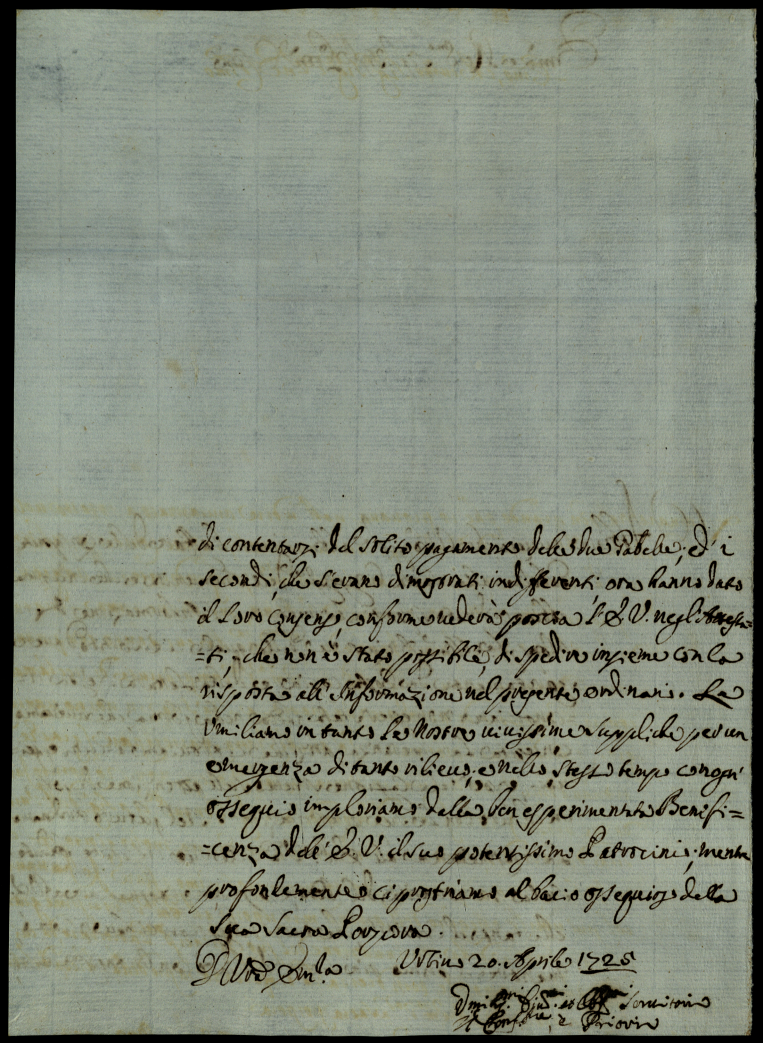 di contentarsi del solito pagamento delle due Gabelle, ed i
secondi, che s'erano dimostrati indifferenti, ora hanno dato
il loro consenso, conforme vederà poscia l'E. V. negl'Attesta=
=ti, che non è stato possibile di spedire insieme con la
risposta all'Informazione nel presente ordinario. Le
Umiliamo in tanto le nostre vivissime suppliche per un
emergenza di tanto rilievo, e nello stesso tempo con ogni
ossequio imploriamo dalla ben esperimentata Benefi=
=cenza dell'E. V. il suo potentissimo Patrocinio, mentre
profondamente ci prostriamo al bacio ossequioso della
Sua Sacra Porpora.
D. Vrā Emza Urbino 20. Aprile 1725
Servitori
Il Confre, e Priori